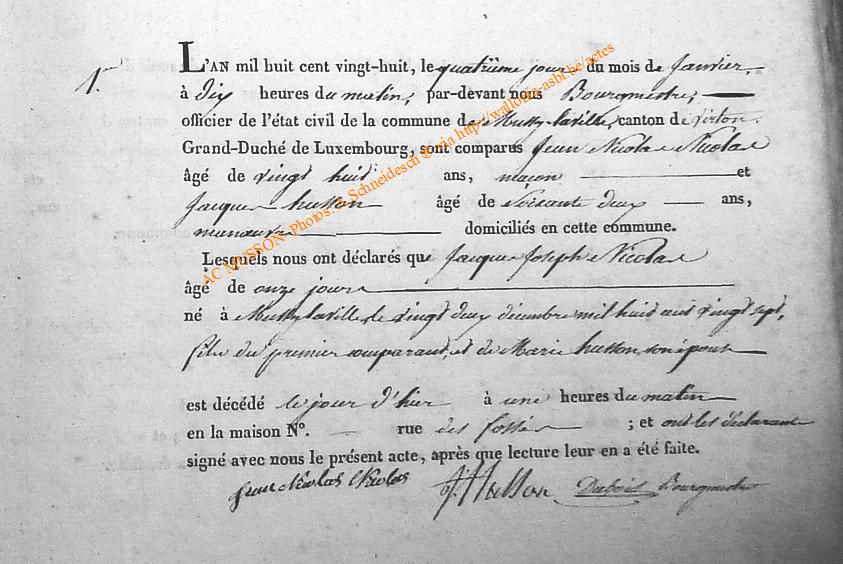 1.
L'AN mil huit cent vingt-huit, le quatrième jour du mois de Janvier,
à dix heures du matin, par-devant nous Bourgmestre,
officier de l'état civil de la commune de Mussy-la-ville, canton de Virton
Grand-Duché de Luxembourg, sont comparus Jean Nicolas Nicolas
âgé de vingt huit ans, maçon et
Jacques husson âgé de soixante deux ans,
manœuvre domiciliés en cette commune.
Lesquels nous ont déclarés que Jacques Joseph Nicolas
âgé de onze jours
né à Mussy la ville, le vingt deux décembre mil huit cent vingt sept,
fils du premier comparant, et de Marie husson, son épouse
est décédé le jour d'hier à une heures du matin
en la maison N°. rue des fossés ; et ont les déclarants
signé avec nous le présent acte, après que lecture leur en a été faite.
jean nicolas nicolas J. Husson Dubois Bourgmestre
AC MUSSON- Photos: Schneidesch © via http://wallonia-asbl.be/actes